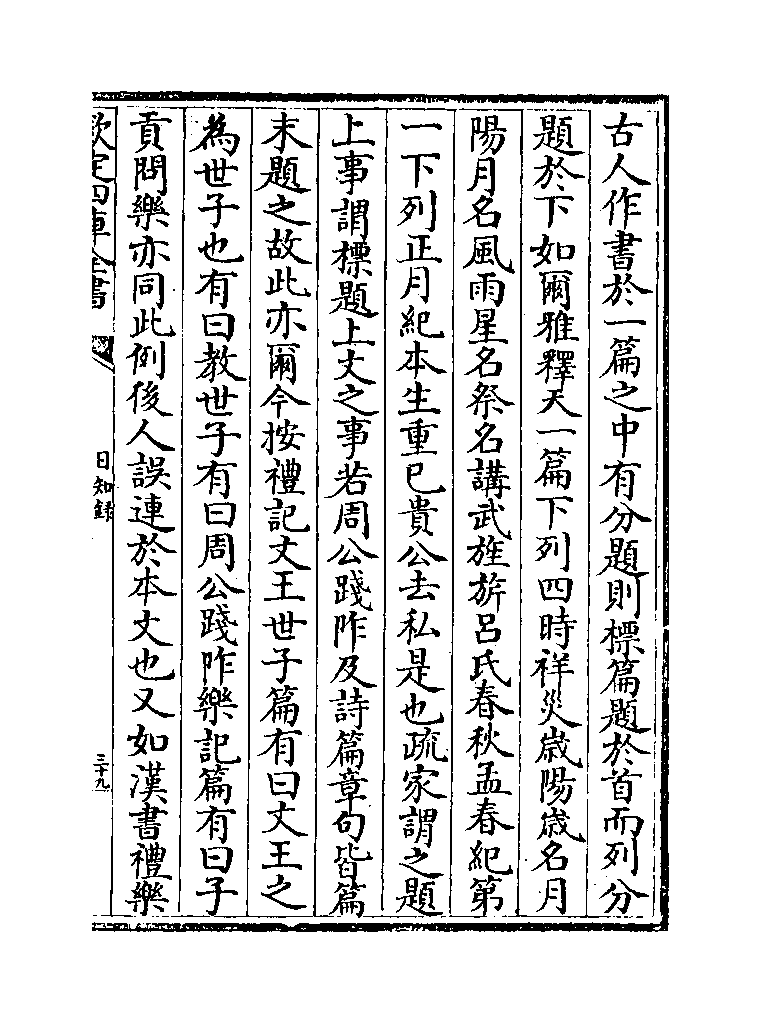 古人作書於一篇之中有分題則標篇題於首而列分
題於下如爾雅釋天一篇下列四時祥災歲陽歲名月
陽月名風雨星名祭名講武旌旂呂氏春秋孟春紀第
一下列正月紀本生重已貴公去私是也疏家謂之題
上事謂標題上文之事若周公踐阼及詩篇章句皆篇
末題之故此亦爾今按禮記文王世子篇有曰文王之
為世子也有曰教世子有曰周公踐阼樂記篇有曰子
貢問樂亦同此例後人誤連於本文也又如漢書禮樂
欽定四庫全書
日知錄
三十九